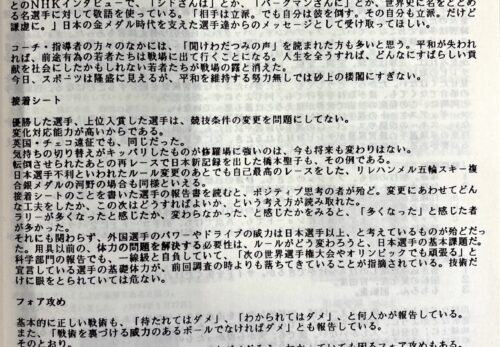 とのNHKインタビューで、「シドさんは」とか、「バーグマンさんに」とか、世界史に名をとどめ
る名選手に対して敬語を使っている。「相手は立派。でも自分は彼を倒す。その自分も立派。だけど
謙虚に。」日本の金メダル時代を支えた選手達からのメッセージとして受け取ってほしい。
コーチ・指導者の方々のなかには、「聞けわだつみの声」を読まれた方も多いと思う。平和が失われ
れば、前途有為の若者たちは戦場に出て行くことになる。人生を全うすれば、どんなにすばらしい貢
献を社会にしたかもしれない若者たちが戦場の霧と消えた。
今日、スポーツは隆盛に見えるが、平和を維持する努力無しでは砂上の楼閣にすぎない。
接着シート
優勝した選手、上位入賞した選手は、競技条件の変更を問題にしてない。
変化対応能力が高いからである。
英国・チェコ遠征でも、同じだった。
気持ちの切り替えがキッパリしたものが修羅場に強いのは、今も将来も変わりはない。
転倒させられたあとの再レースで日本新記録を出した橋本聖子も、その例である。
日本選手不利といわれたルール変更のあとでも自己最高のレースをした、リレハンメル五輪スキー複
合銀メダルの河野の場合も同様といえる。
接着シートのことを書いた選手の報告書を読むと、ポジティブ思考の者が殆ど。変更にあわせてどん
な工夫をしたか、この次はどうすればよいか、という考え方が読み取れた。
ラリーが多くなったと感じたか、変わらなかった、と感じたかをみると、「多くなった」と感じた者
が多かった。
それにも関わらず、外国選手のパワーやドライブの威力は日本選手以上、と考えているものが殆どだっ
た。用具以前の、体力の問題を解決する必要性は、ルールがどう変わろうと、日本選手の基本課題だ。
科学部門の報告でも、一線級と自負していて、「次の世界選手権大会やオリンピックでも頑張る」と
宣言している選手の基礎体力が、前回調査の時よりも落ちてきていることが指摘されている。技術だ
けに眼をとられていては危ない。
フォア攻め
基本的に正しい戦術も、「待たれてはダメ」、「わかられてはダメ」、と何人かが報告している。
また、「戦術を裏づける威力のあるボールでなければダメ」とも報告している。
そのとおり。